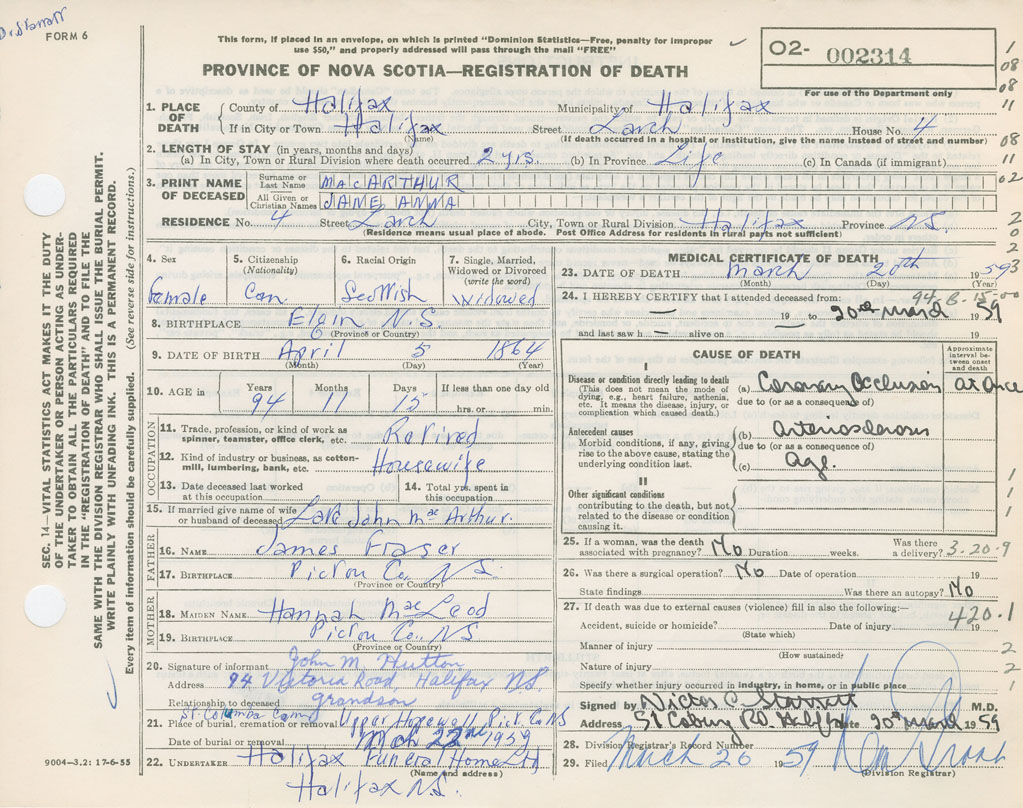 Dr. Starratt
FORM 6
This form, if placed in an envelope, on which is printed "Dominion Statistics—Free, penalty for improper
use $50," and properly addressed will pass through the mail "FREE"
PROVINCE OF NOVA SCOTIA—REGISTRATION OF DEATH
O2- 002314
For use of the Department only
1. PLACE OF DEATH County of Halifax Municipality of Halifax
If in City or Town Halifax Street Larch House No. 4
(Name) (If death occurred in a hospital or institution, give the name instead of street and number)
2. LENGTH OF STAY (in years, months and days)
(a) In City, Town or Rural Division where death occurred 2 yrs. (b) In Province Life (c) In Canada (if immigrant)
3. PRINT NAME OF DECEASED Surname or Last Name MACARTHUR
All Given or Christian Names JANE ANNA
RESIDENCE No. 4 Street Larch City, Town or Rural Division Halifax Province N.S.
(Residence means usual place of abode. Post Office Address for residents in rural parts not sufficient)
4. Sex Female
5. Citizenship (Nationality) Can
6. Racial Origin Scottish
7. Single, Married, Widowed or Divorced (write the word) Widowed
8. BIRTHPLACE Elgin N.S.
(Province or Country)
9. DATE OF BIRTH April 5 1864
(Month) (Day) (Year)
10. AGE in Years 94 Months 11 Days 15 If less than one day old hrs. or min.
OCCUPATION
11. Trade, profession, or kind of work as spinner, teamster, office clerk, etc. Retired
12. Kind of industry or business, as cotton-mill, lumbering, bank, etc. Housewife
13. Date deceased last worked at this occupation
14. Total yrs. spent in this occupation
15. If married give name of wife or husband of deceased Late John MacArthur.
FATHER
16. NAME James Fraser
17. BIRTHPLACE Pictou Co. N.S.
(Province or Country)
MOTHER
18. MAIDEN NAME Hannah MacLeod
19. BIRTHPLACE Pictou Co., NS
(Province or Country)
20. Signature of informant John M. Hutton
Address 94 Victoria Road, Halifax NS.
Relationship to deceased grandson
St Columba Cem.
21. Place of burial, cremation or removal Upper Hopewell, Pict. Co NS
Date of burial or removal Mch 22nd 1959
22. UNDERTAKER Halifax Funeral Home Ltd,
(Name and address)
Halifax N.S.
9004—3.2: 17-6-55
MEDICAL CERTIFICATE OF DEATH
23. DATE OF DEATH March 20th 1959
(Month) (Day) (Year)
24. I HEREBY CERTIFY that I attended deceased from: 94-B-15-00
— 19 — to 20th March 1959
and last saw h — alive on — 19
CAUSE OF DEATH
Approximate interval between onset and death
I
Disease or condition directly leading to death
(This does not mean the mode of dying, e.g., heart failure, asthenia, etc. It means the disease, injury, or complication which caused death.)
(a) Coronary Occlusion at once
due to (or as a consequence of)
Antecedent causes
Morbid conditions, if any, giving rise to the above cause, stating the underlying condition last.
(b) Arteriosclerosis
due to (or as a consequence of)
(c) Age.
II
Other significant conditions
contributing to the death, but not related to the disease or condition causing it.
25. If a woman, was the death associated with pregnancy? No Duration weeks. Was there a delivery? 3-20-9
26. Was there a surgical operation? No Date of operation 19
State findings Was there an autopsy? No
27. If death was due to external causes (violence) fill in also the following:—
420.1
Accident, suicide or homicide? Date of injury 19
(State which)
Manner of injury
(How sustained)
Nature of injury
Specify whether injury occurred in industry, in home, or in public place
Signed by Victor C. Starratt M.D.
Address 51 Coburg Rd. Halifax Date 20th March 1959
28. Division Registrar's Record Number
29. Filed March 20 1959
(Division Registrar)
SEC. 14—VITAL STATISTICS ACT MAKES IT THE DUTY
OF THE UNDERTAKER OR PERSON ACTING AS UNDER-
TAKER TO OBTAIN ALL THE PARTICULARS REQUIRED
IN THE "REGISTRATION OF DEATH" AND TO FILE THE
SAME WITH THE DIVISION REGISTRAR WHO SHALL ISSUE THE BURIAL PERMIT.
WRITE PLAINLY WITH UNFADING INK. THIS IS A PERMANENT RECORD.
Every item of information should be carefully supplied. (See reverse side for instructions.)
1
08
08
11
08
11
02
2
0
2
3
1
1
1
2
2
1